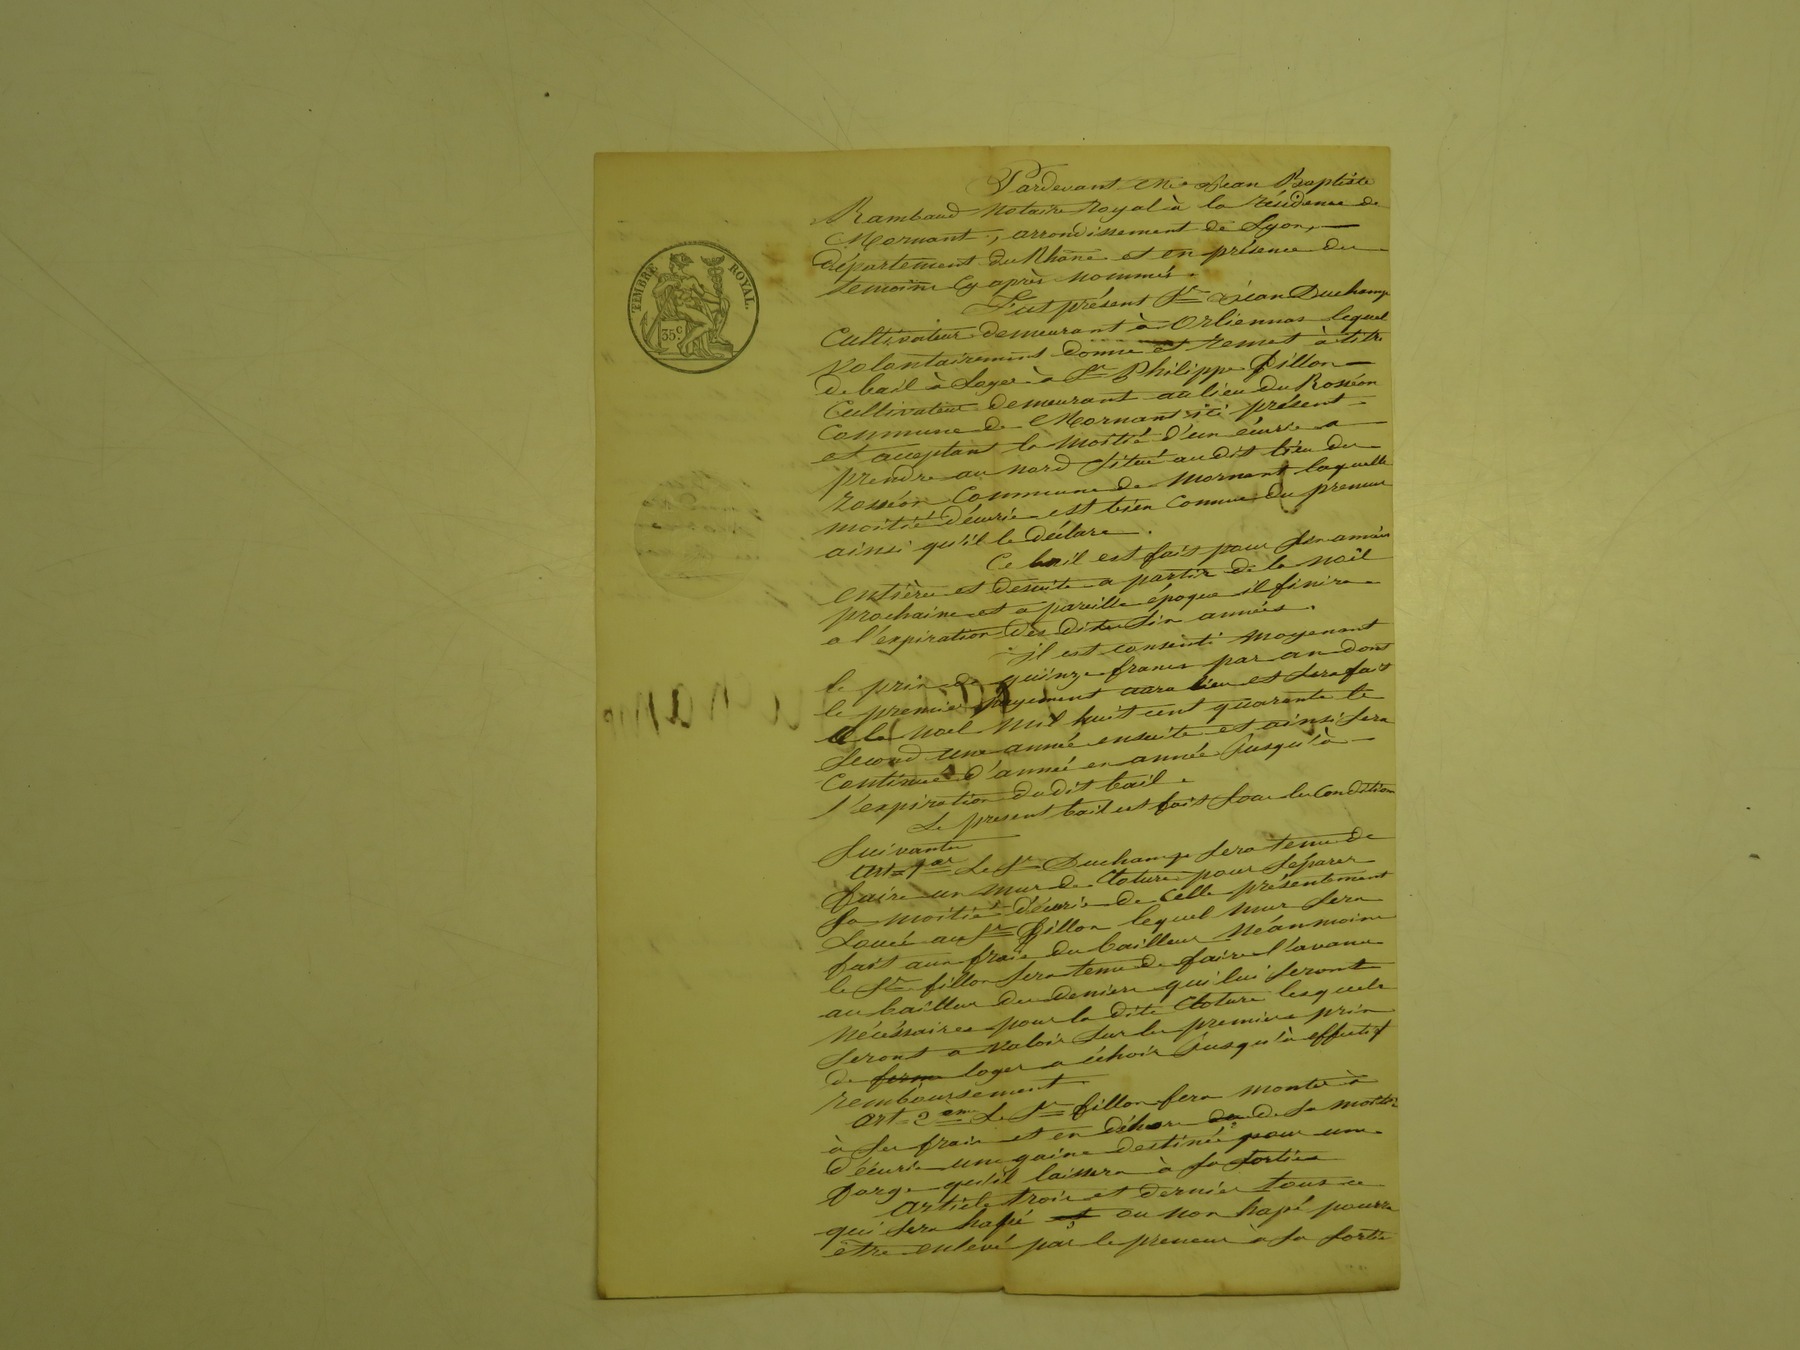 TIMBRE ROYAL.
35.c
Pardevant Me Jean Baptiste
Rambaud Notaire Royal à la résidence de
Mornant, arrondissement de Lyon,
Département du Rhône et en présence des
temoins cy après nommés.
Fut présent Sr Jean Duchamp
Cultivateur demeurant à Orliennas lequel
Volontairement donne et remet à titre
de bail à loyer à Sr Philippe fillon
Cultivateur demeurant au lieu du Rosséon
Commune de Mornant ici présent
et acceptant la moitié d'un écurie a
prendre au nord situé au dit lieu du
rosséon Commune de Mornant laquelle
moitié d'écurie est bien connue du preneur
ainsi qu'il le déclare.
Ce bail est fait pour six années
entières et desuite a partir de la noël
prochaine et a pareille époque il finira
a l'expiration des dites six années.
il est consenti moyenant
le prix de quinze francs par an dont
le premier payement aura lieu et sera fait
a la noel mil huit cent quarante le
second une année ensuite et ainsi sera
continué d'année en année jusqu'à
l'expiration dudit bail.
Le present bail est fait sous les Conditions
Suivantes
art= 1er Le Sr Duchamp sera tenu de
faire un mur de cloture pour séparer
sa moitié d'écurie de celle présentement
Louée au Sr fillon lequel mur sera
fait aux frais du bailleur Néanmoins
le Sr fillon sera tenu de faire l'avance
au bailleur des deniers qui lui seront
nécéssaires pour la dite cloture lesquels
seront a valoir sur les premiers prix
de ferme loyer a échoir jusqu'à effectif
remboursement.
art= 2eme Le Sr fillon fera monter à
à ses frais et en déhors de sa moitié
d'écurie une gaine destinée pour une
forge qu'il laissera à sa sortie
article trois et dernier tous ce
qui sera hapé et ou non hapé pourra
être enlevé par le preneur à sa sortie